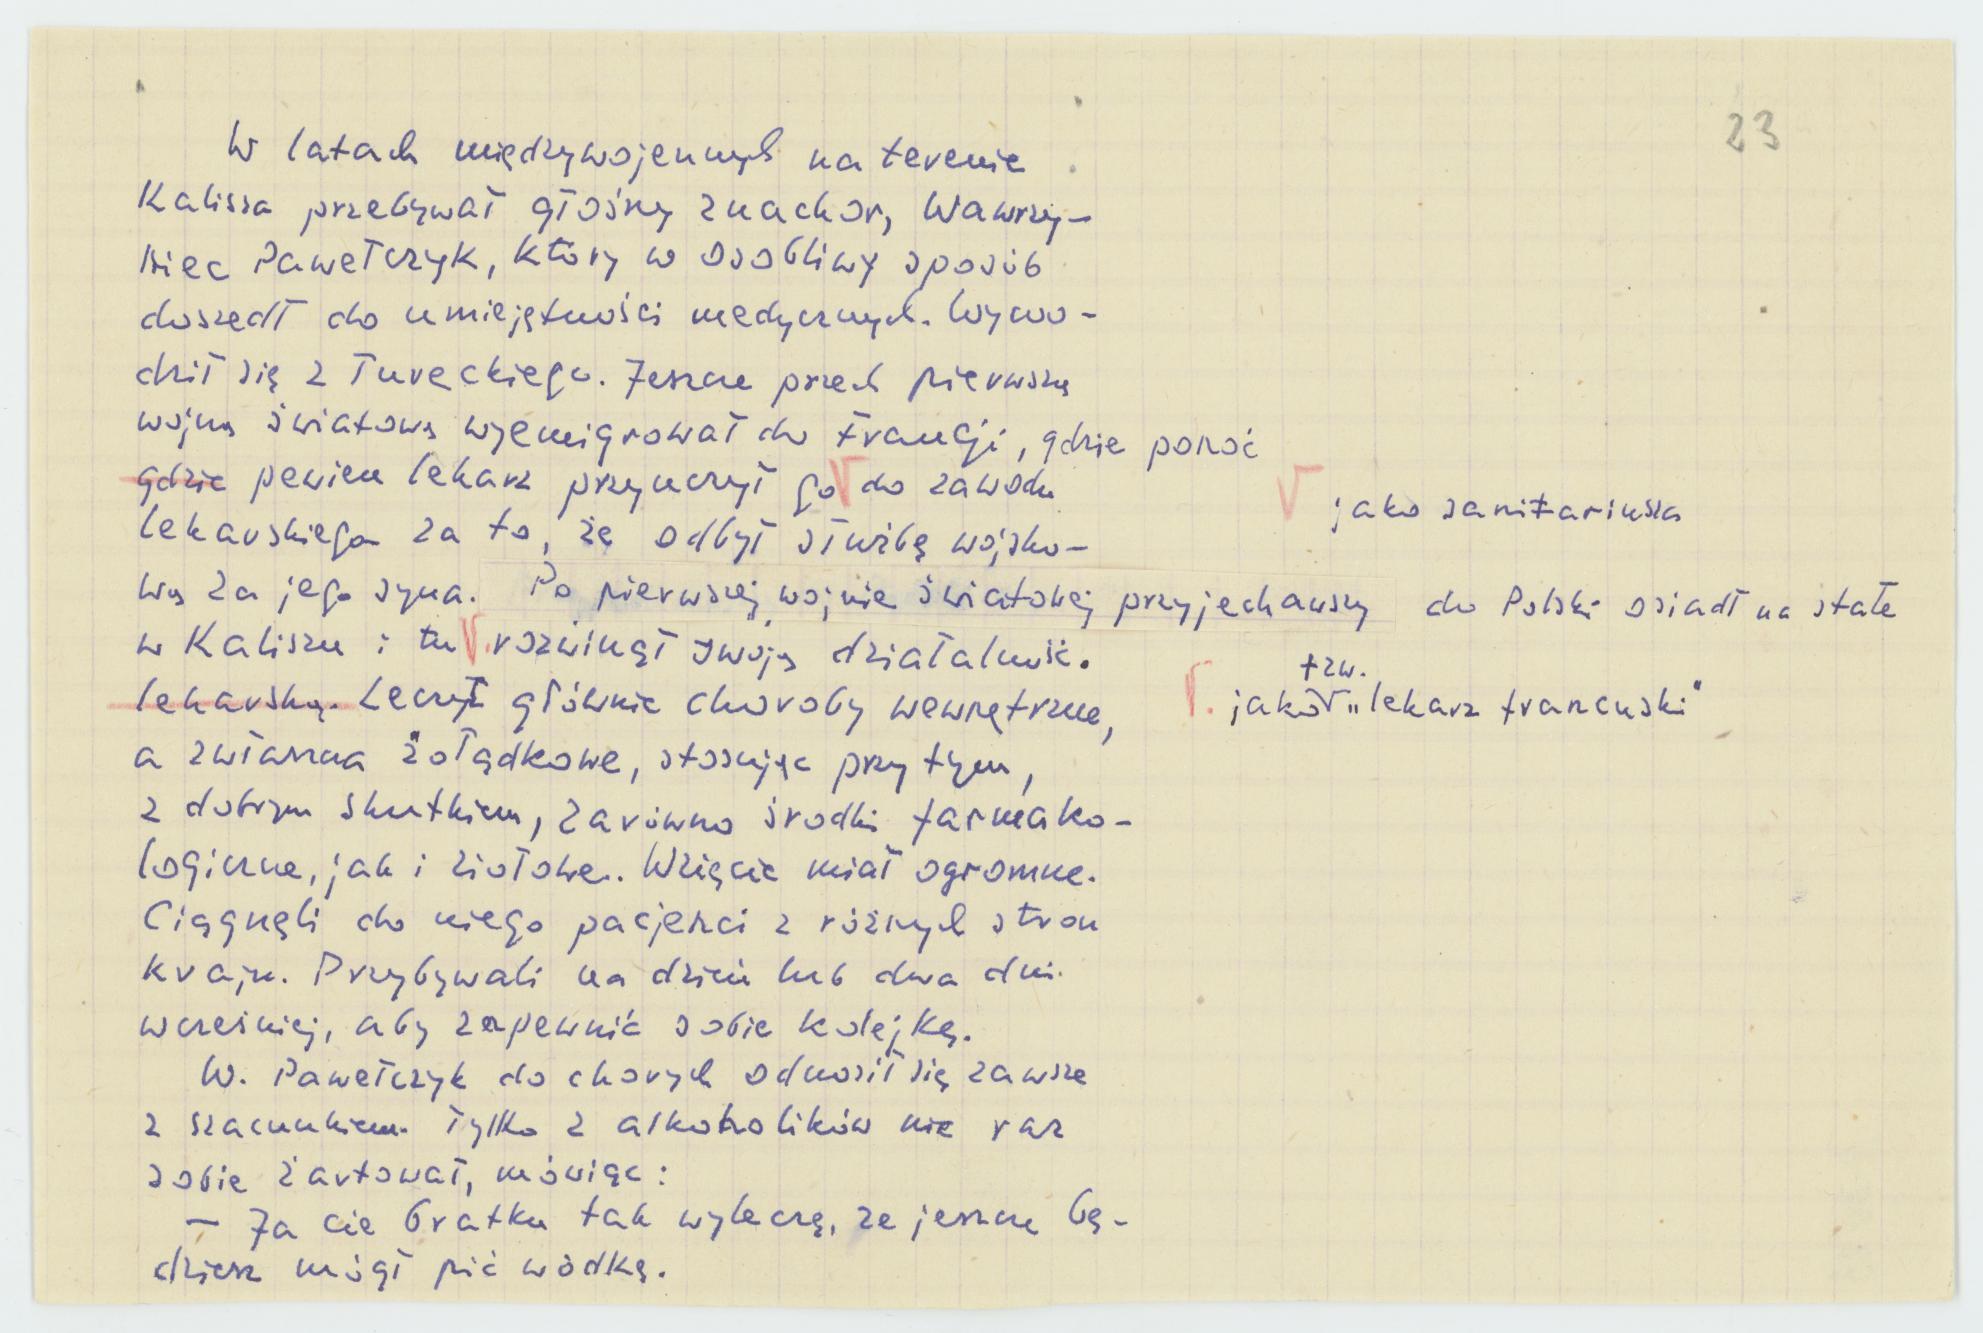 23
W latach międzywojennych na terenie
Kalisza przebywał głośny znachor, Wawrzy-
niec Pawełczyk, który w osobliwy sposób
doszedł do umiejętności medycznych. Wywo-
dził się z Tureckiego. Jeszcze przed pierwszą
wojną światową wyemigrował do Francji, gdzie ponoć
gdzie pewien lekarz przyuczył go √ do zawodu
√ jako sanitariusza
lekarskiego za to, że odbył służbę wojsko-
wą za jego syna. Po pierwszej wojnie światowej przyjechawszy do Polski osiadł na stałe
w Kaliszu i tu √. rozwinął swoją działalność.
lekarską. Leczył głównie choroby wewnętrzne,
tzw.
√. jako √ „lekarz francuski"
a zwłaszcza żołądkowe, stosując przy tym,
z dobrym skutkiem, zarówno środki farmako-
logiczne, jak i ziołowe. Wzięcie miał ogromne.
Ciągnęli do niego pacjenci z różnych stron
kraju. Przybywali na dzień lub dwa dni
wcześniej, aby zapewnić sobie kolejkę.
W. Pawełczyk do chorych odnosił się zawsze
z szacunkiem. Tylko z alkoholików nie raz
sobie żartował, mówiąc:
— Ja cie bratku tak wyleczę, że jeszcze bę-
dziesz mógł pić wódkę.